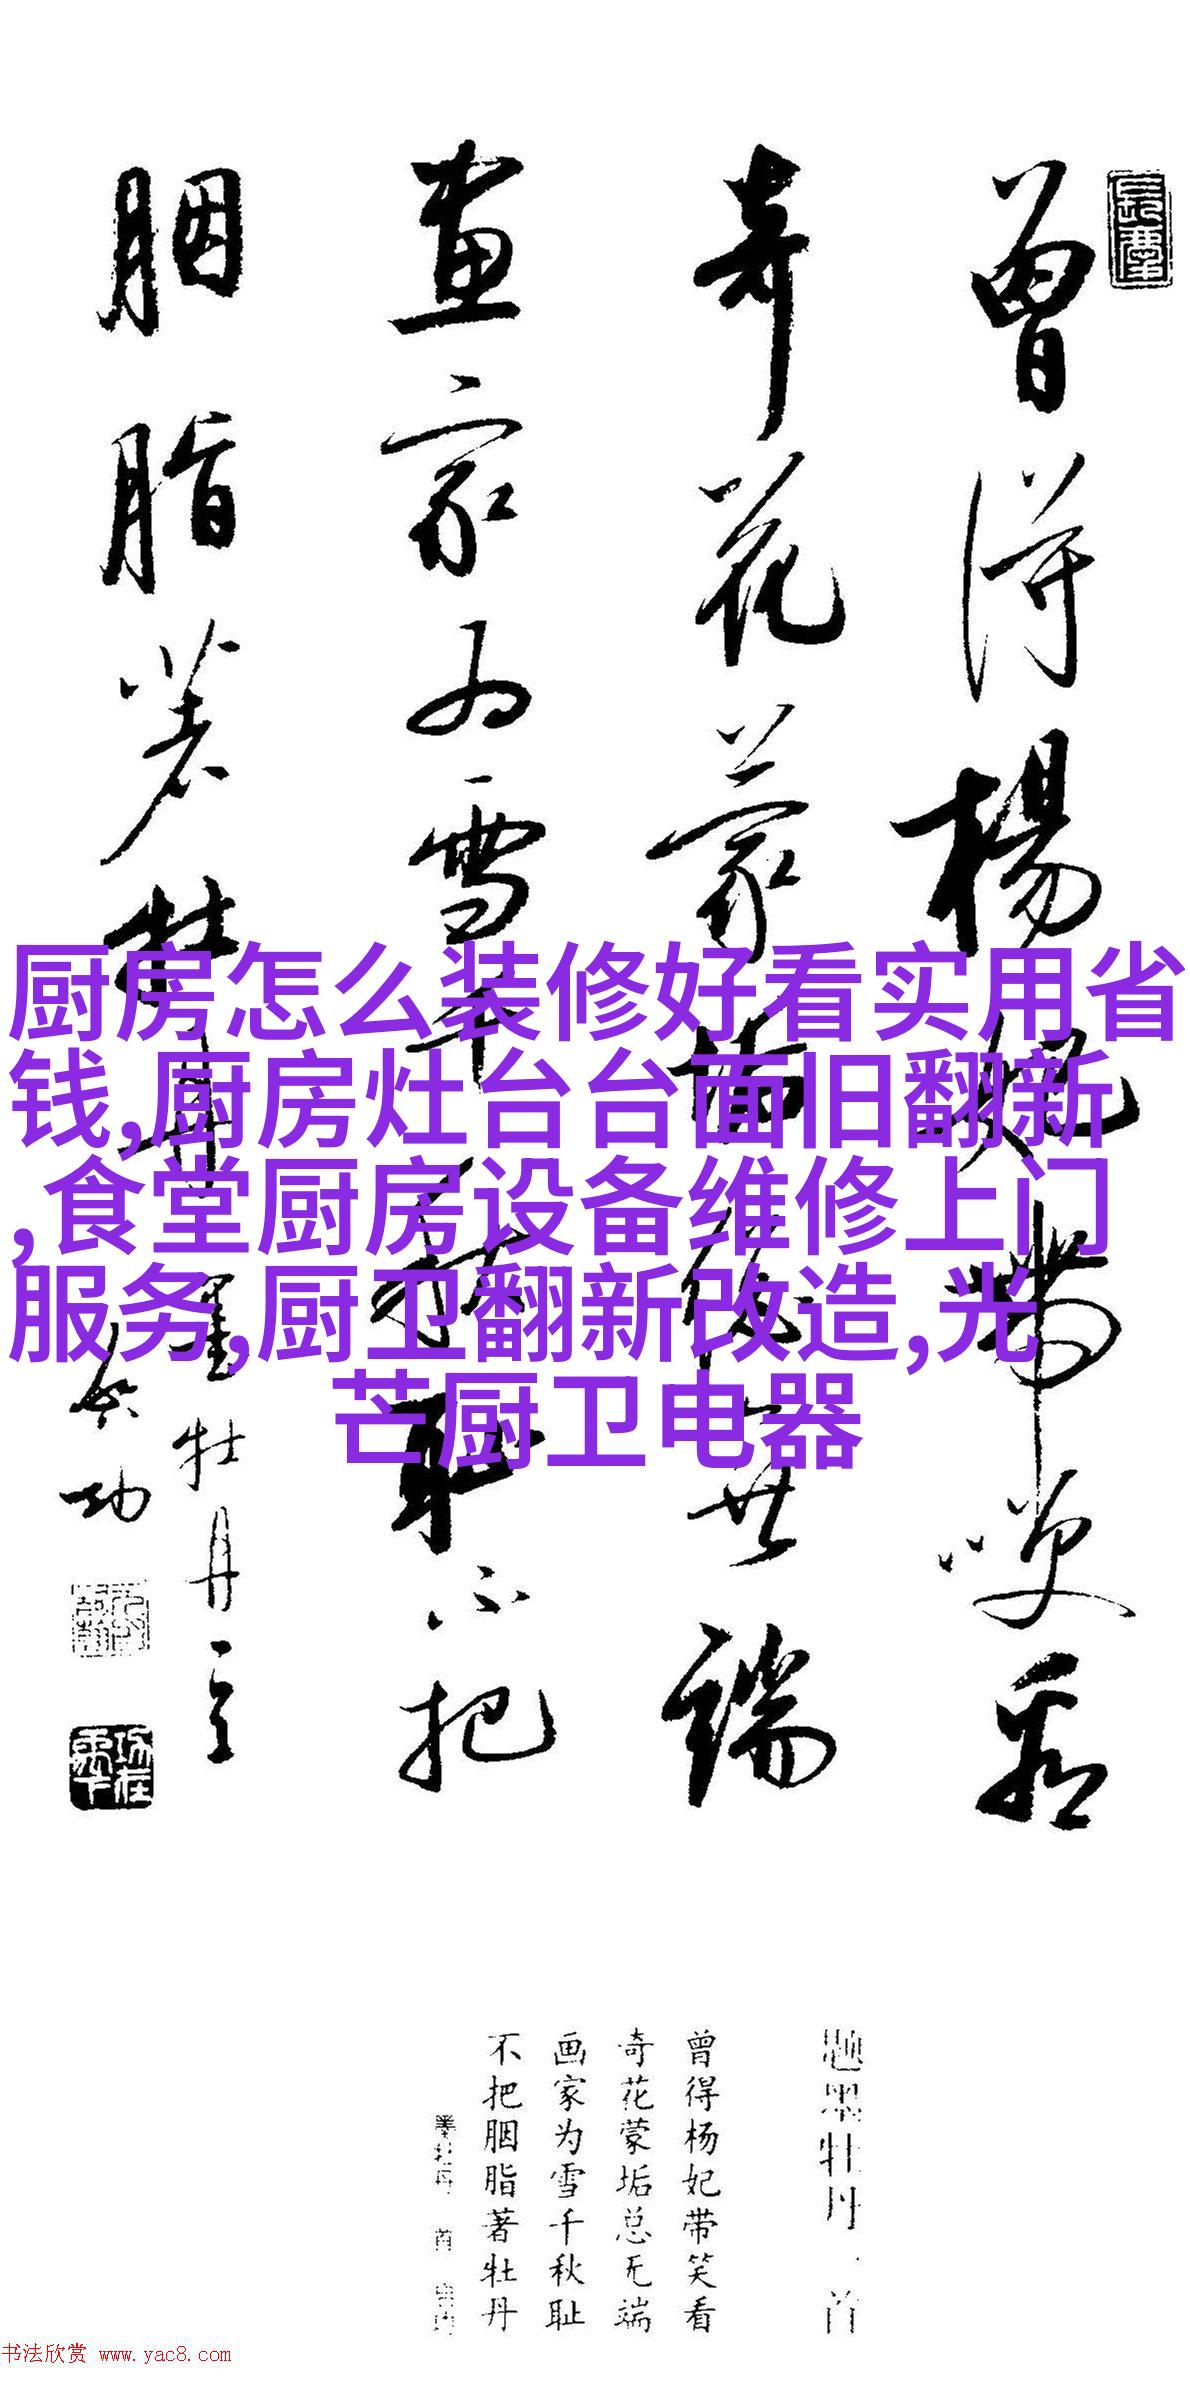 曾得楊妃帶笑看
奇花蒙垢總無端
畫家為雪千秋恥不把
胭脂著牡丹
墨牡丹一首
啓功
厨房怎么装修好看实用省
钱,厨房灶台台面旧翻新
,食堂厨房设备维修上门
服务,厨卫翻新改造,光
芒厨卫电器
题墨牡丹一首
曾得杨妃带笑看
奇花蒙垢总无端
画家为雪千秋耻
不把胭脂著牡丹
书法欣赏 www.yac8.com